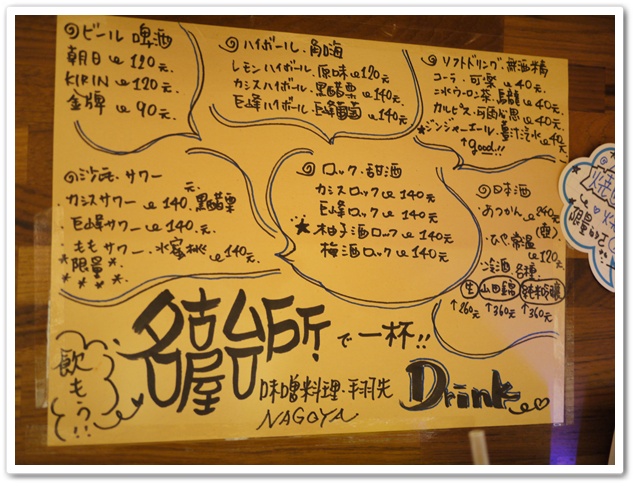 ◎ビール 啤酒
朝日 @120元.
KIRIN @120元.
金牌 @90元.
◎ハイボール・角嗨
レモンハイボール・原味@120元
カシスハイボール・黑醋栗@140元.
巨峰ハイボール・巨峰葡萄@140元.
◎ソフトドリンク・無酒精
コーラ・可樂 @40元.
ウーロン茶・烏龍@40元
カルピス・可爾必思@40元
★ジンジャーエール・薑汁汽水@40元
↑good!!
サワー
カシスサワー @140. 黑醋栗
巨峰サワー @140元.
ももサワー・水蜜桃@140元.
限量
◎ロック・甜酒
カシスロック @140元
巨峰ロック @140元
★柚子酒ロック@140元
梅酒ロック@140元
◎日本酒
あつかん@240元
ひや・常溫@120元
冷酒 各種.
生 山田錦 純米吟釀
↑260元 ↑360元 ↑360元
名古屋台所!で一杯!!
飲もう!!
味噌料理・手羽先
NAGOYA
Drink
限量